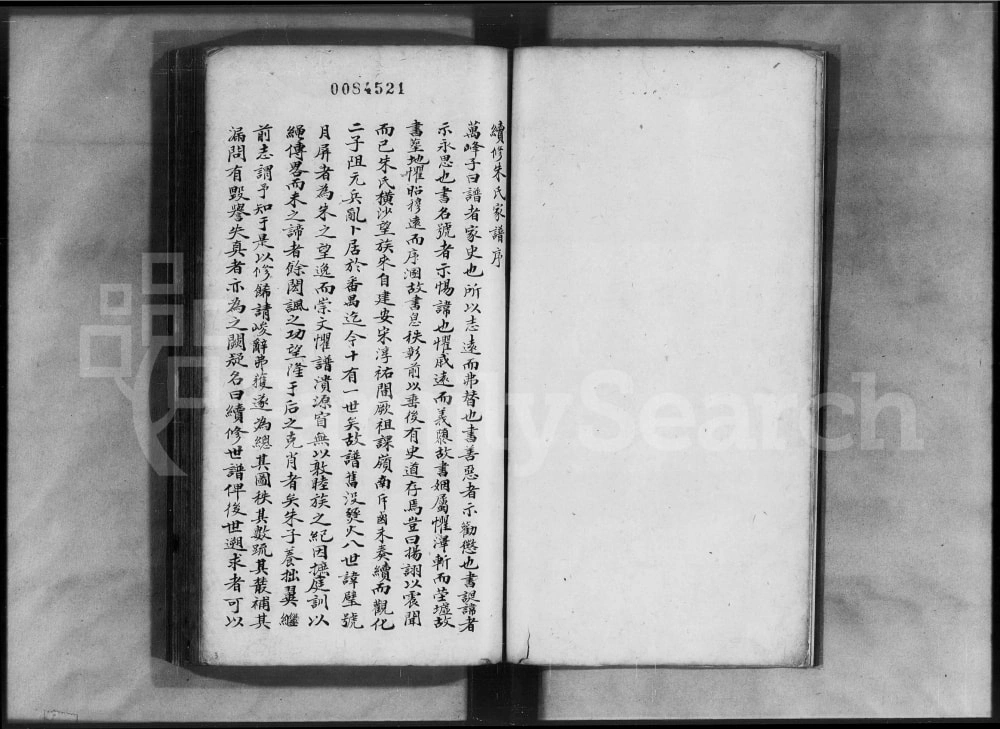 0084521
續修朱氏家譜序
萬峰子曰譜者家史也所以志遠而弗替也書善惡者示勸懲也書誕諱者
示永思也書名號者示惕諱也懼戚遠而義隳故書姻屬懼澤斬而塋墟故
書塋地懼昭穆遠而序溷故書息秩彰前以垂後有史道存焉豈曰揚詡以震聞
而已朱氏橫沙望族來自建安宋淳祐間厥祖諜嶺南斥國未奏續而觀化
二子阻元兵亂卜居於番禺迄今十有一世矣故譜舊沒燹火八世諱璧號
月屏者為朱之望逸而崇文懼譜潰源窅無以敦睦族之紀因摭庭訓以
繩傳畧而未之諦者餘閎諷之功望隆于后之克肖者矣朱子養拙翼繼
前志謂予知于是以修餙請峻辭弗獲遂為總其圖秩其數疏其叢補其
漏問有毀譽失真者亦為之闕疑名曰續修世譜俾後世遡求者可以
FamilySearch